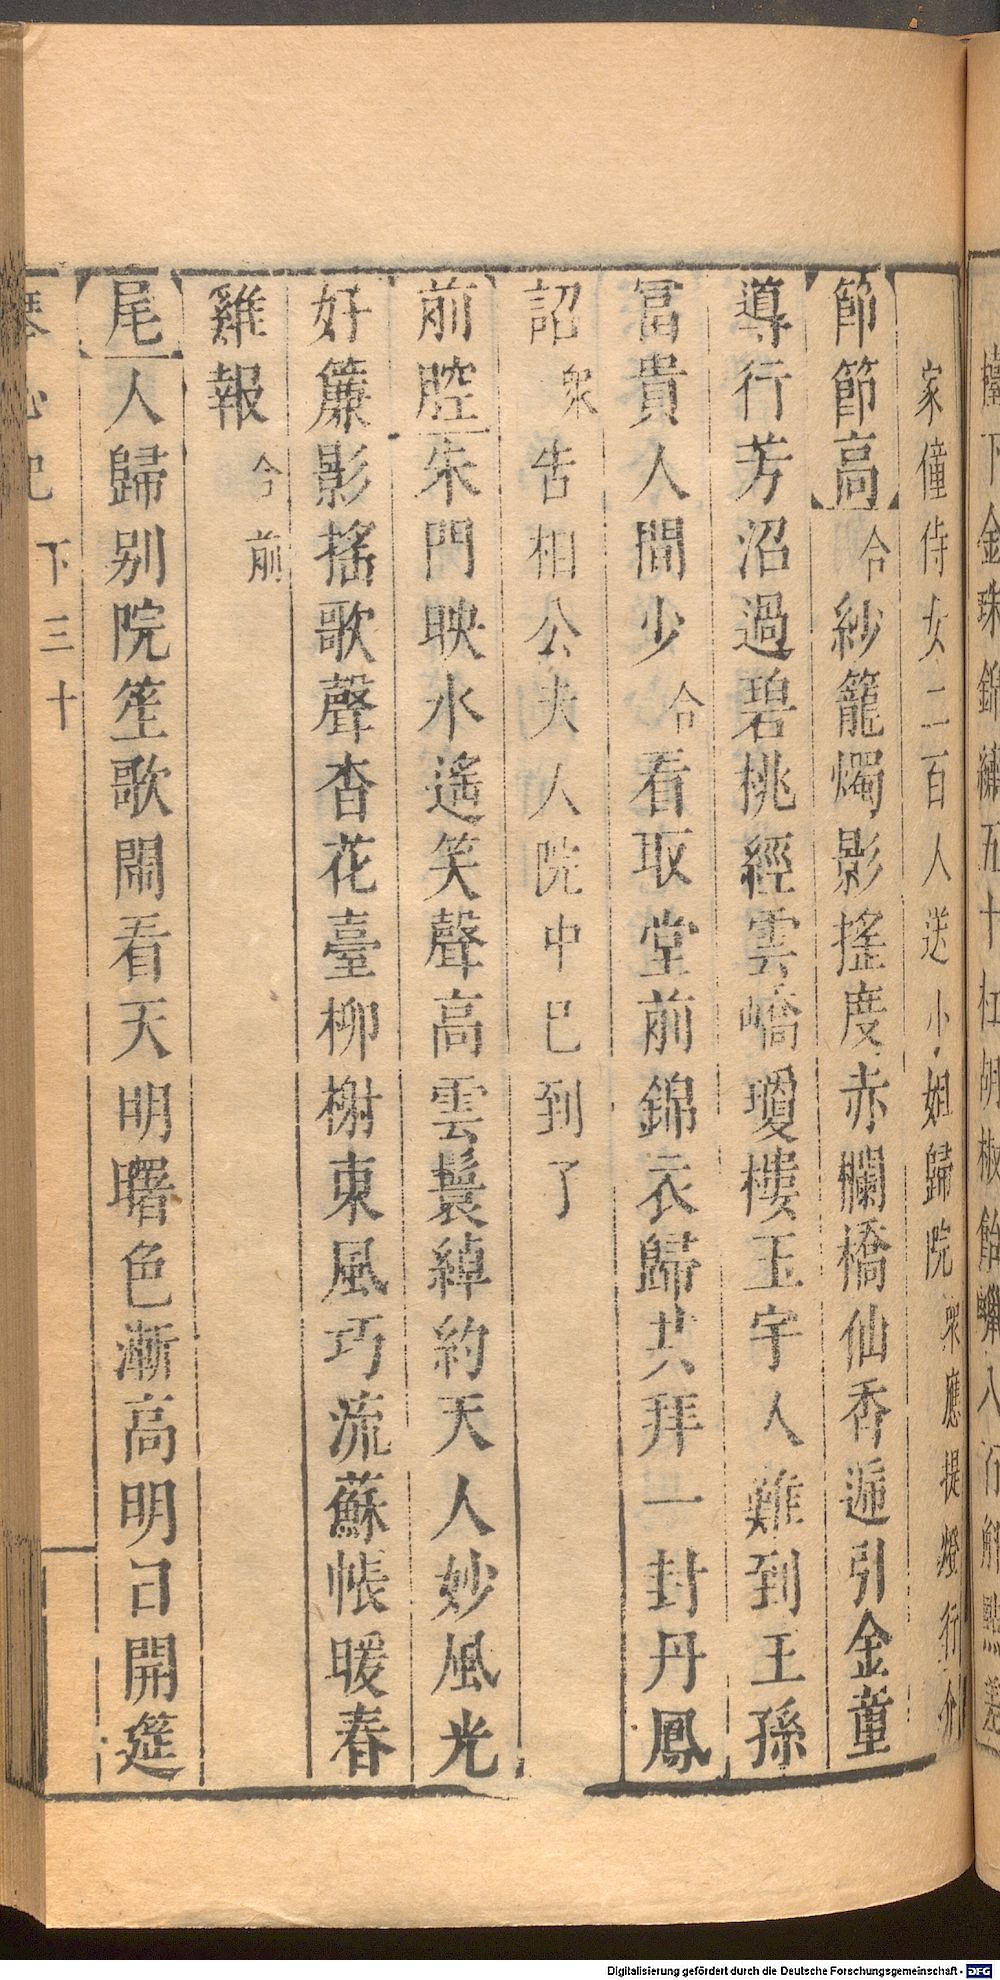 家僮侍女二百人送小姐歸院衆應提燈行介
節節高合紗籠燭影搖度赤欄橋仙香遞引金童
導行芳沼過碧桃經雲嶠瓊樓玉宇人難到王孫
冨貴人間少合看取堂前錦衣歸共拜一封丹鳳
詔衆告相公夫人院中已到了
前腔朱門映水遙笑聲高雲鬟綽約天人妙風光
好簾影搖歌聲杳花臺柳榭東風巧流蘇帳暖春
雞報合前
尾人歸别院笙歌鬧看天明曙色漸高明日開筵
琴心記下三十
Digitalisierung gefördert durch die Deutsche Forschungsgemeinschaft - DFG